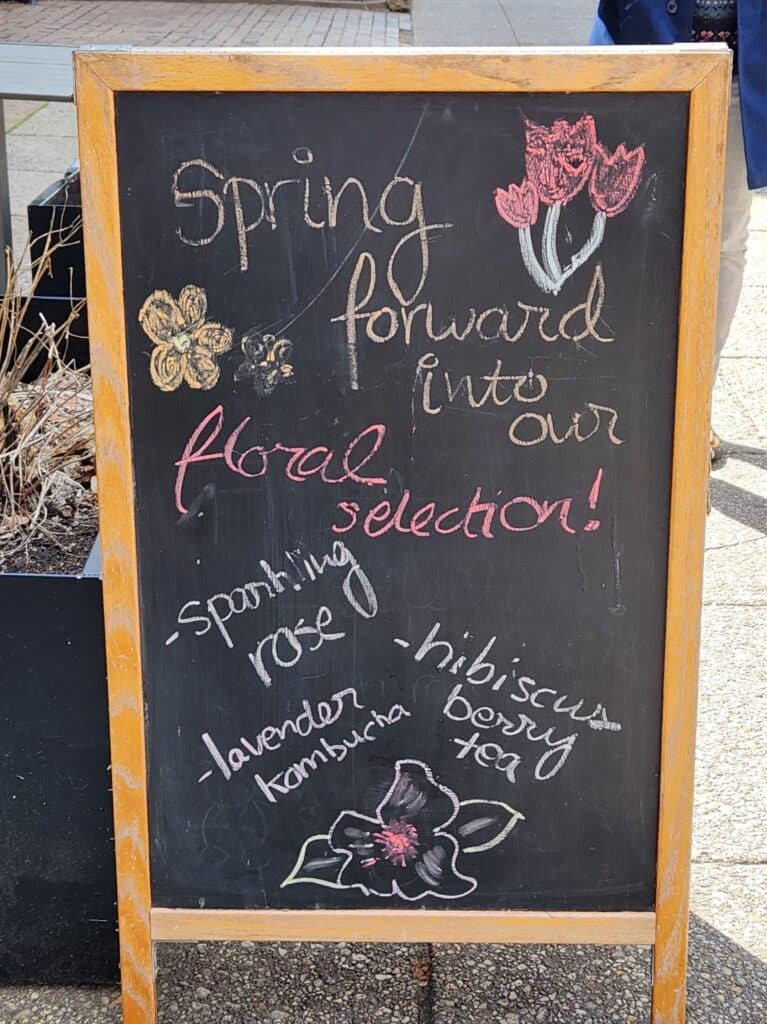 Spring
forward
into
our
floral
selection!
-sparkling
rose
-hibiscus
berry
tea
-lavender
kombucha